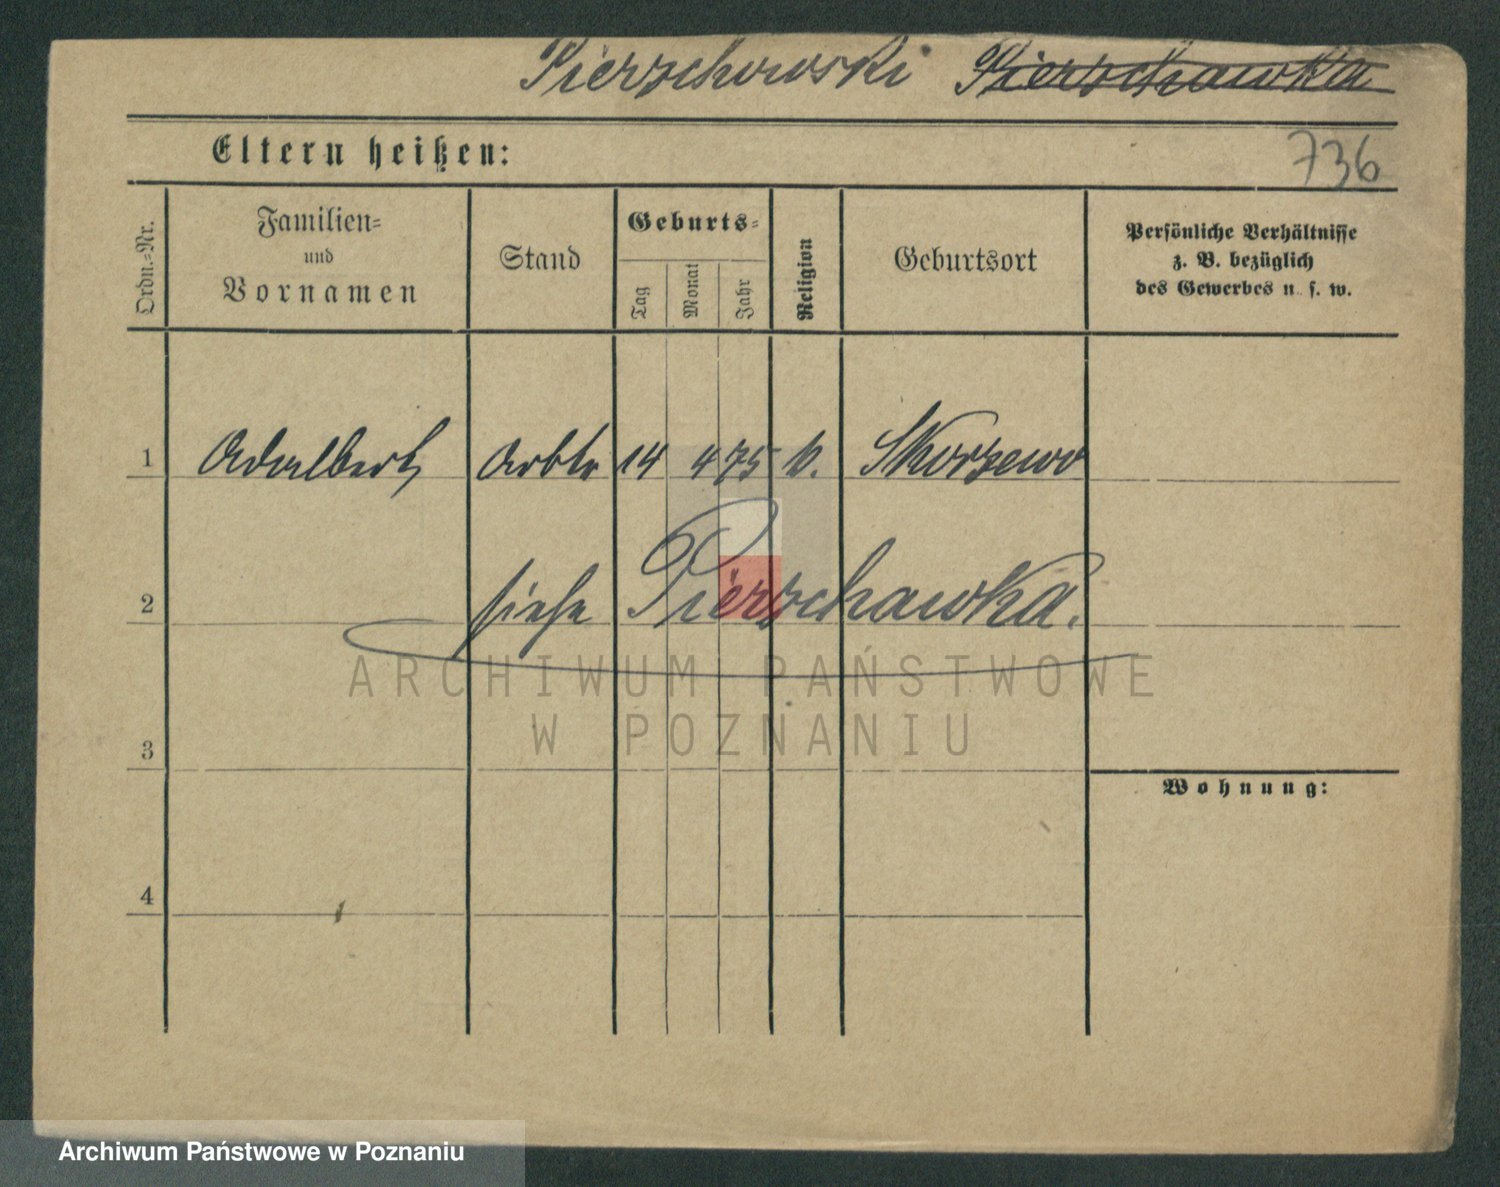 Pierschowski Pierschawka
Eltern heißen:
736
Ordn.-Nr.
Familien-
und
Vornamen
Stand
Geburts-
Tag
Monat
Jahr
Religion
Geburtsort
Persönliche Verhältnisse
z. B. bezüglich
des Gewerbes u. s. w.
1 Adalbert Arbtr 14 4 75 k. Skorzewo
2 siehe Pierschawka.
3
Wohnung:
4
ARCHIWUM PAŃSTWOWE
W POZNANIU
Archiwum Państwowe w Poznaniu